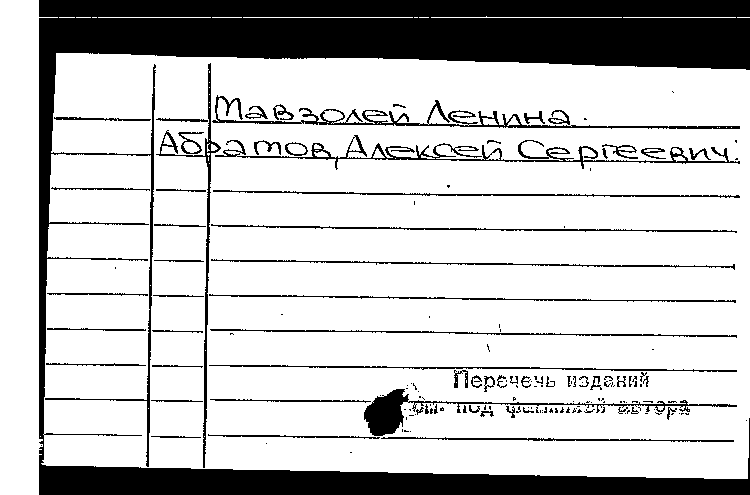 Мавзолей Ленина.
Абрамов, Алексей Сергеевич.
Перечень изданий
см. под фамилией автора